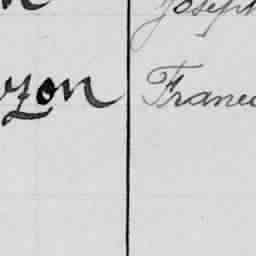 n Joseph
yzon Franci